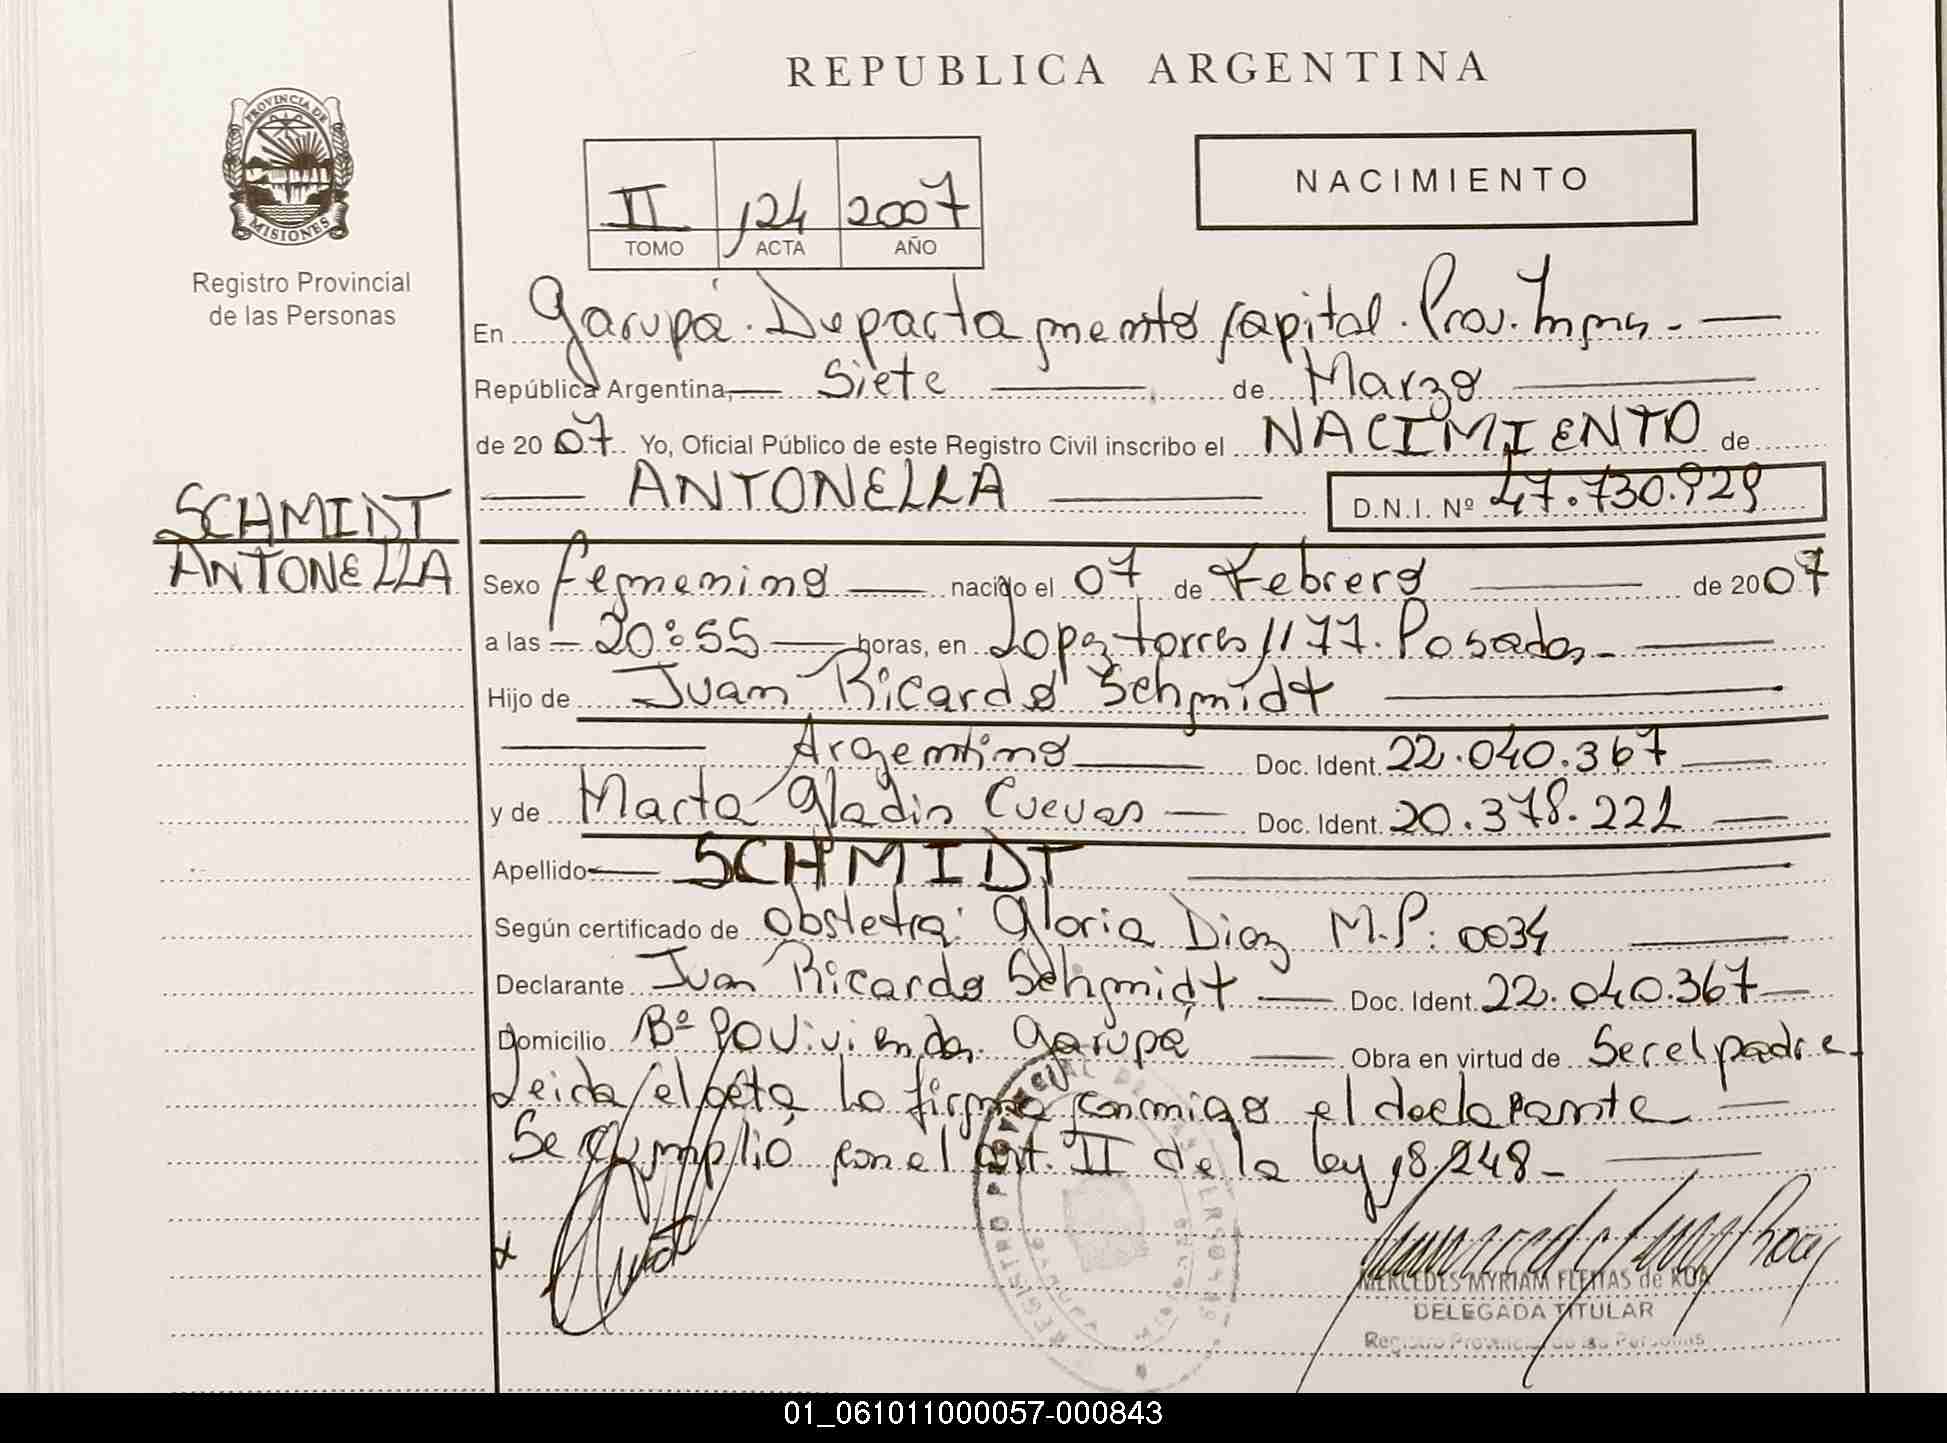 REPUBLICA ARGENTINA
PROVINCIA DE
MISIONES
Registro Provincial
de las Personas
II 124 2007
TOMO ACTA AÑO
NACIMIENTO
En Garupá. Departamento Capital. Prov. Mnes.
República Argentina, Siete de Marzo
de 2007 Yo, Oficial Público de este Registro Civil inscribo el NACIMIENTO de
ANTONELLA D.N.I. Nº 47.730.929
SCHMIDT
ANTONELLA
Sexo Femenino nacido el 07 de Febrero de 2007
a las 20:55 horas, en Lopez torres 1177. Posadas
Hijo de Juan Ricardo Schmidt
Argentino Doc. Ident. 22.040.367
y de Marta Gladis Cuevas Doc. Ident. 20.378.221
Apellido SCHMIDT
Según certificado de Obstetra: Gloria Diaz M.P: 0034
Declarante Juan Ricardo Schmidt Doc. Ident. 22.040.367
Domicilio Bº Viviendas. Garupá Obra en virtud de Ser el padre
Leida el acta la firma conmigo el declarante
Se cumplió con el art. II de la ley 18.248
REGISTRO PROVINCIAL DE LAS PERSONAS
MERCEDES MYRIAM FLEITAS de ROA
DELEGADA TITULAR
Registro Provincial de las Personas
01_061011000057-000843